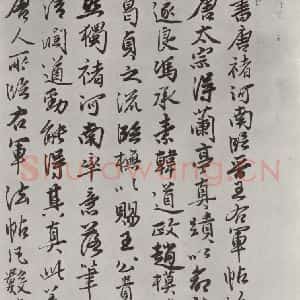 書唐褚河南臨晉王右軍帖
唐太宗得蘭亭真蹟以
遂良馮承素韓道政趙模
葛貞之流臨搨以賜王公貴
然獨褚河南意落筆
清潤遒勁能得其真此
唐人所臨右軍法帖凡數
Shufawang.CN